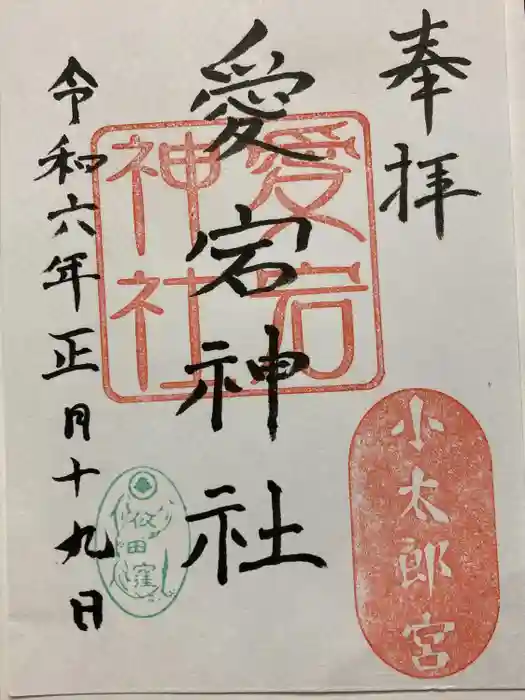 奉拝
小太郎宮
愛宕神社
愛宕
神社
令和六年正月十九日
依田窪